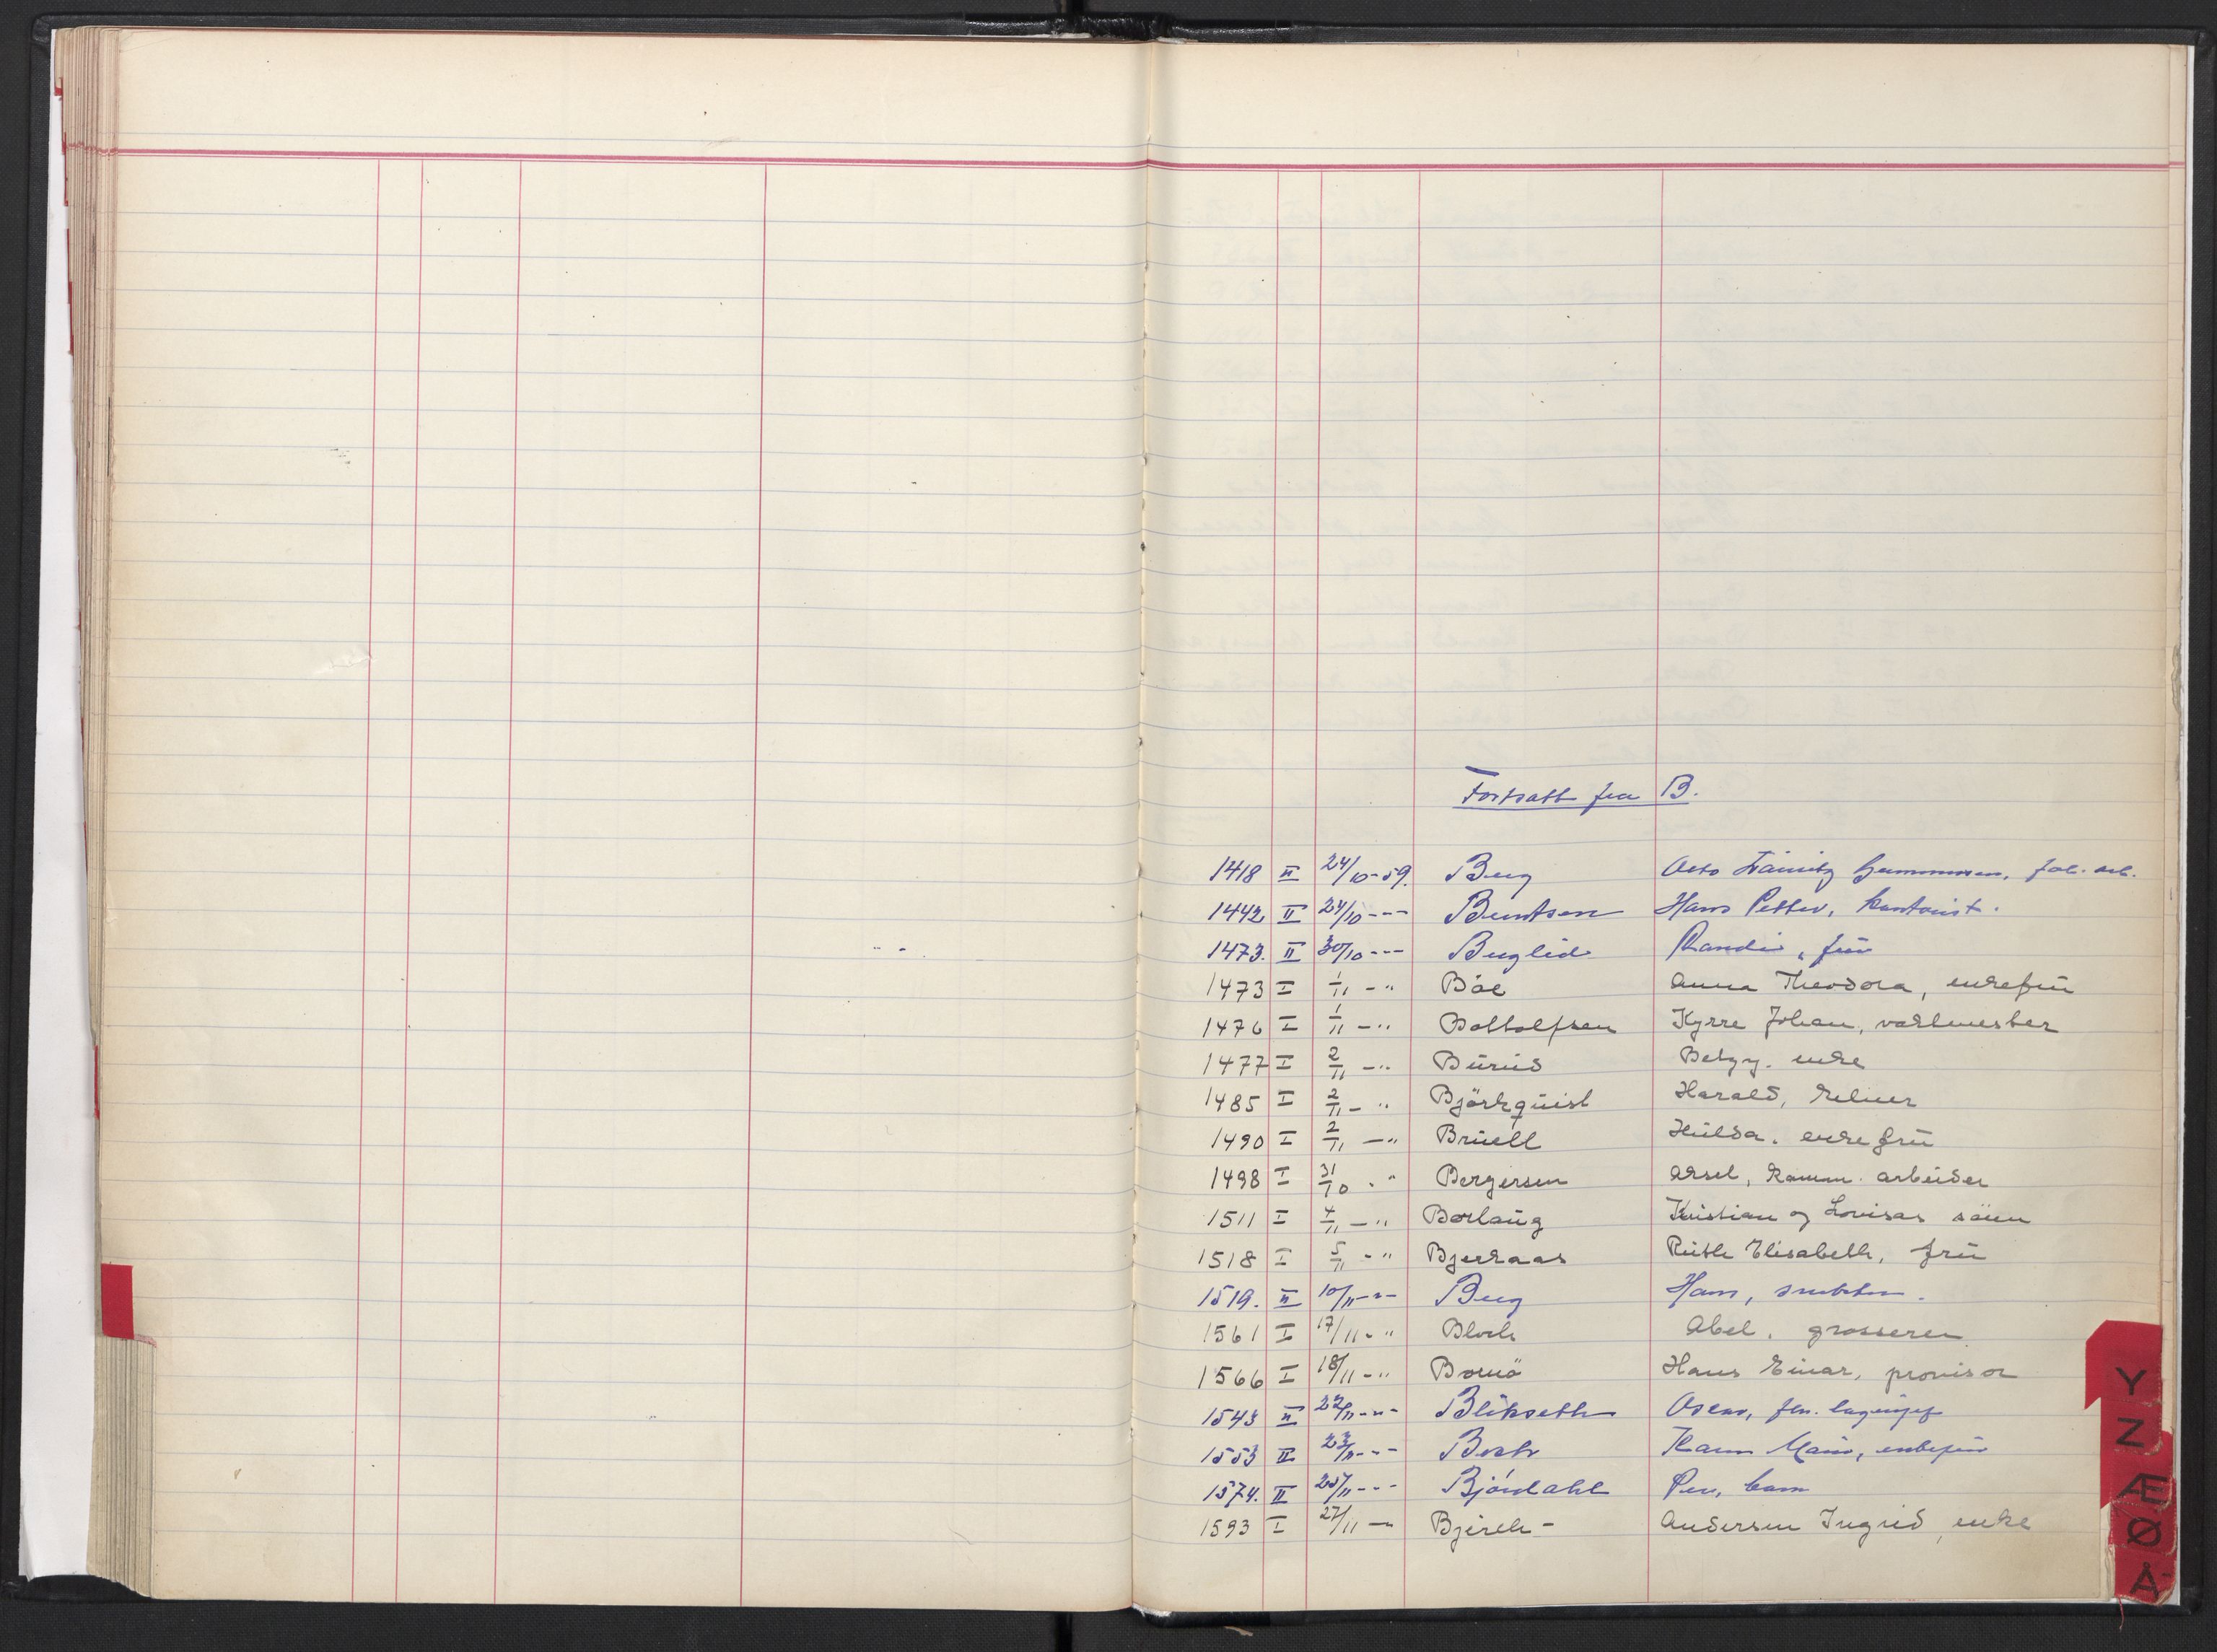 Fortsatt fra B.
1418 II 24/10-59. Berg Otto Gummersen, fab. arb.
1442 II 24/10 --- Berntsen Hans Petter, kontorist.
1473. II 30/10 --- Berglid Randi, frü
1473 I 1/11 -" Böe Anna Theodora, enkefrü
1476 I 1/11 -" Bottolfsen Kyrre Johan, vaktmester
1477 I 2/11 -" Bürüd Betzy. enke
1485 I 2/11 -" Björkqüist Harald, kelner
1490 I 2/11 -" Brüell Hülda. enkefrü
1498 I 31/10 -" Bergersen Aksel, komm. arbeider
1511 I 4/11 -" Borlaüg Kristian og Lovisas sönn
1518 I 5/11 -" Bjerkaas Rüth Elisabeth, frü
1519. II 10/11 -"- Berg Hans, snekker.
1561 I 17/11 -" Bloch Abel. grosserer
1566 I 18/11 -" Bornö Hans Einar, provisor
1543 II 22/11 -"- Blikseth Oskar, fhv. lagersjef
1553 II 23/11 --- Karen Marie, enkefrü
1574. II 25/11 --- Bjórdahl Per, barn
1593 I 27/11 -" Bjerch- Andersen Ingrid, enke
Y
Z
Æ
Ø
Å